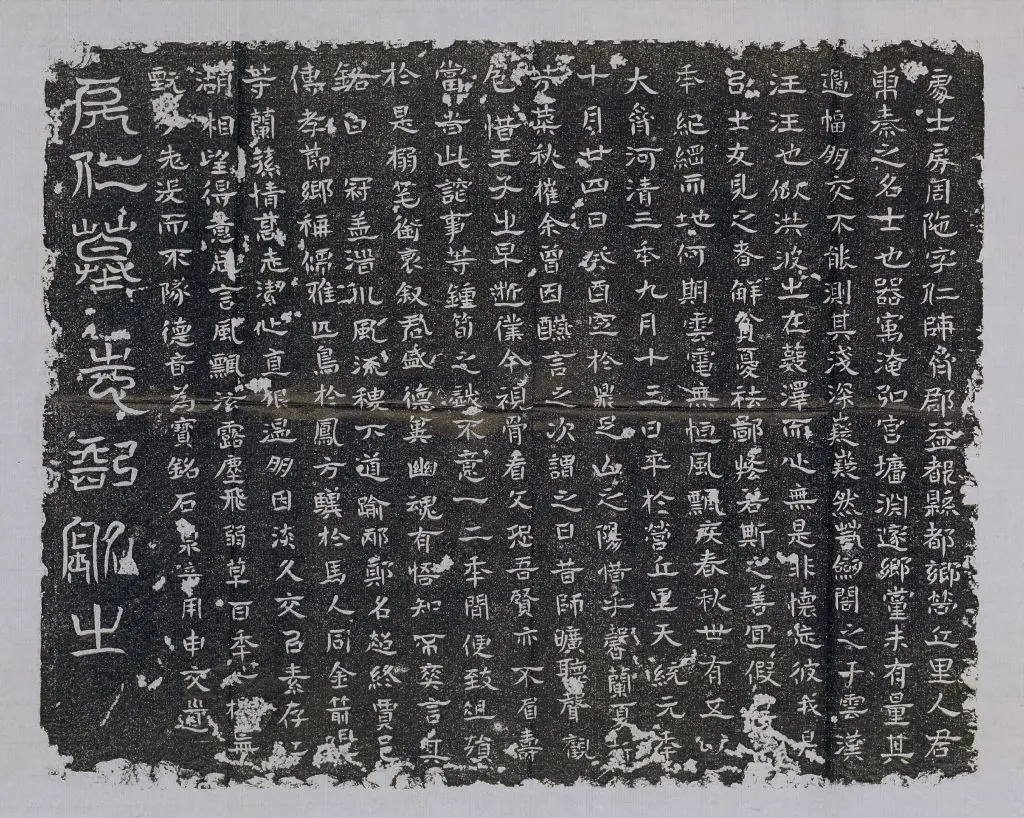 處士房周陁字仁師齊郡益都縣都鄉營丘里人君
東秦之名士也器寓淹弘宮墻渊邃鄉黨未有量其
過幅朋交不能測其淺深巍巍然
汪汪也似洪波之在藪澤而心無是非懷
士友見之者解貪憂祛鄙悋若斯之善宜假
年紀經而地何期雲電無恆風飄疾春秋世有五以
大齊河清三年九月十三日卒於營丘里天統元年
十月廿四日癸酉窆於鼎足山之陽惜乎馨蘭夏
芳菜秋摧余曾因醼言之次謂之曰昔師曠聽聲觀
色惜王子之早逝僕今視骨看文恐吾賢亦不眉壽
當此談事等鍾筍之戲不意一二年間便致俎殞
於是搦筆銜哀叙君盛德冀幽魂有悟知不爽言其
銘曰 冠盖滔風流穗下道踰邴鄭名超終賈邑
傳孝節鄉稱儒雅匹鳥於鳳方驥於馬人同金箭
等蘭蓀情高志潔心直温朋因淡久交以素存
湖相望得意忘言風飄泫露塵飛弱草百年
先没而不隊德音為寶銘石泉用申交
房仁墓志